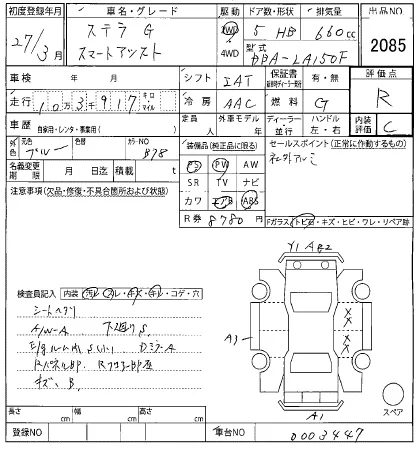 初度登録年月 車名・グレード 駆動 ドア数・形状 排気量 出品NO
27/3月 ステラ G スマートアシスト 2WD 4WD 5 HB 660cc 2085
型式 DBA-LA150F
車検 年 月 シフト IAT 保証書 有・無 評価点
走行 10万3千917 キロ マイル 冷房 AAC 燃料 G R
車歴 自家用・レンタ・事業用( ) 定員 人 外車モデル 年 ディーラー 並行 ハンドル 左・右 内装評価 C
外色 元色 ブルー 色替 カラーNO B78
装備品(純正品に限る) セールスポイント(正常に作動するもの)
名義変更期限 月 日迄 積載 t
PS PW AW 社外アルミ
SR TV ナビ
注意事項(欠品・修復・不具合箇所および状態)
カワ エアB ABS
R券 8780円 Fガラス(トビ石・キズ・ヒビ・ワレ・リペア跡)
Y1 A
検査員記入 内装(汚レ・スレ・キズ・キレ・コゲ・穴)
シートヘタリ
A/W-A 下廻りS
A1
A1
キズ B
スペア
長さ cm 幅 cm 高さ cm
登録NO 車台NO 0003447